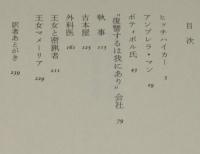 目次
ヒッチハイカー 5
アンブレラ・マン 29
ボティボル氏 45
“復讐するは我にあり”会社 79
執事 115
古本屋 125
外科医 161
王女と密猟者 211
王女マメーリア 229
訳者あとがき 239